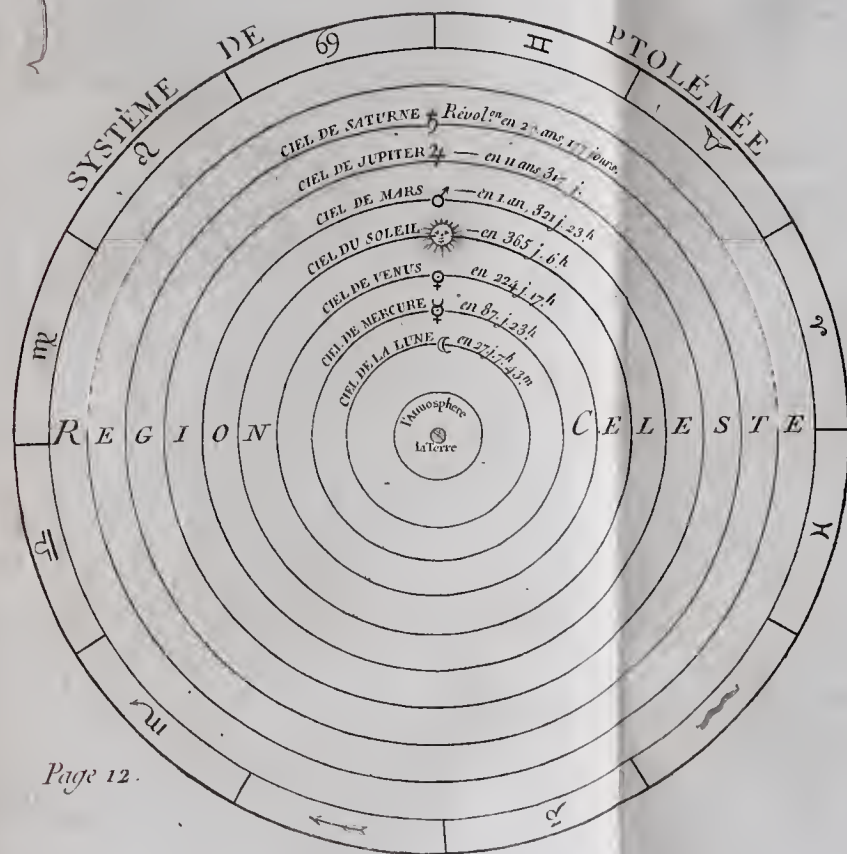 SYSTÈME DE PTOLÉMÉE
♋ ♊ ♉ ♈ ♓ ♒ ♑ ♐ ♏ ♎ ♍ ♌
CIEL DE SATURNE ♄ Révol.on en ans, 177 jours.
CIEL DE JUPITER ♃ — en 11 ans j.
CIEL DE MARS ♂ — en 1 an, 321 j. 23.h
CIEL DU SOLEIL — en 365 j. 6.h
CIEL DE VENUS ♀ en 224 j. 17.h
CIEL DE MERCURE ☿ en 87. j. 23.h
CIEL DE LA LUNE ☾ en 27 j. 7.h 43.m
l'Atmosphere
la Terre
REGION CELESTE
Page 12.